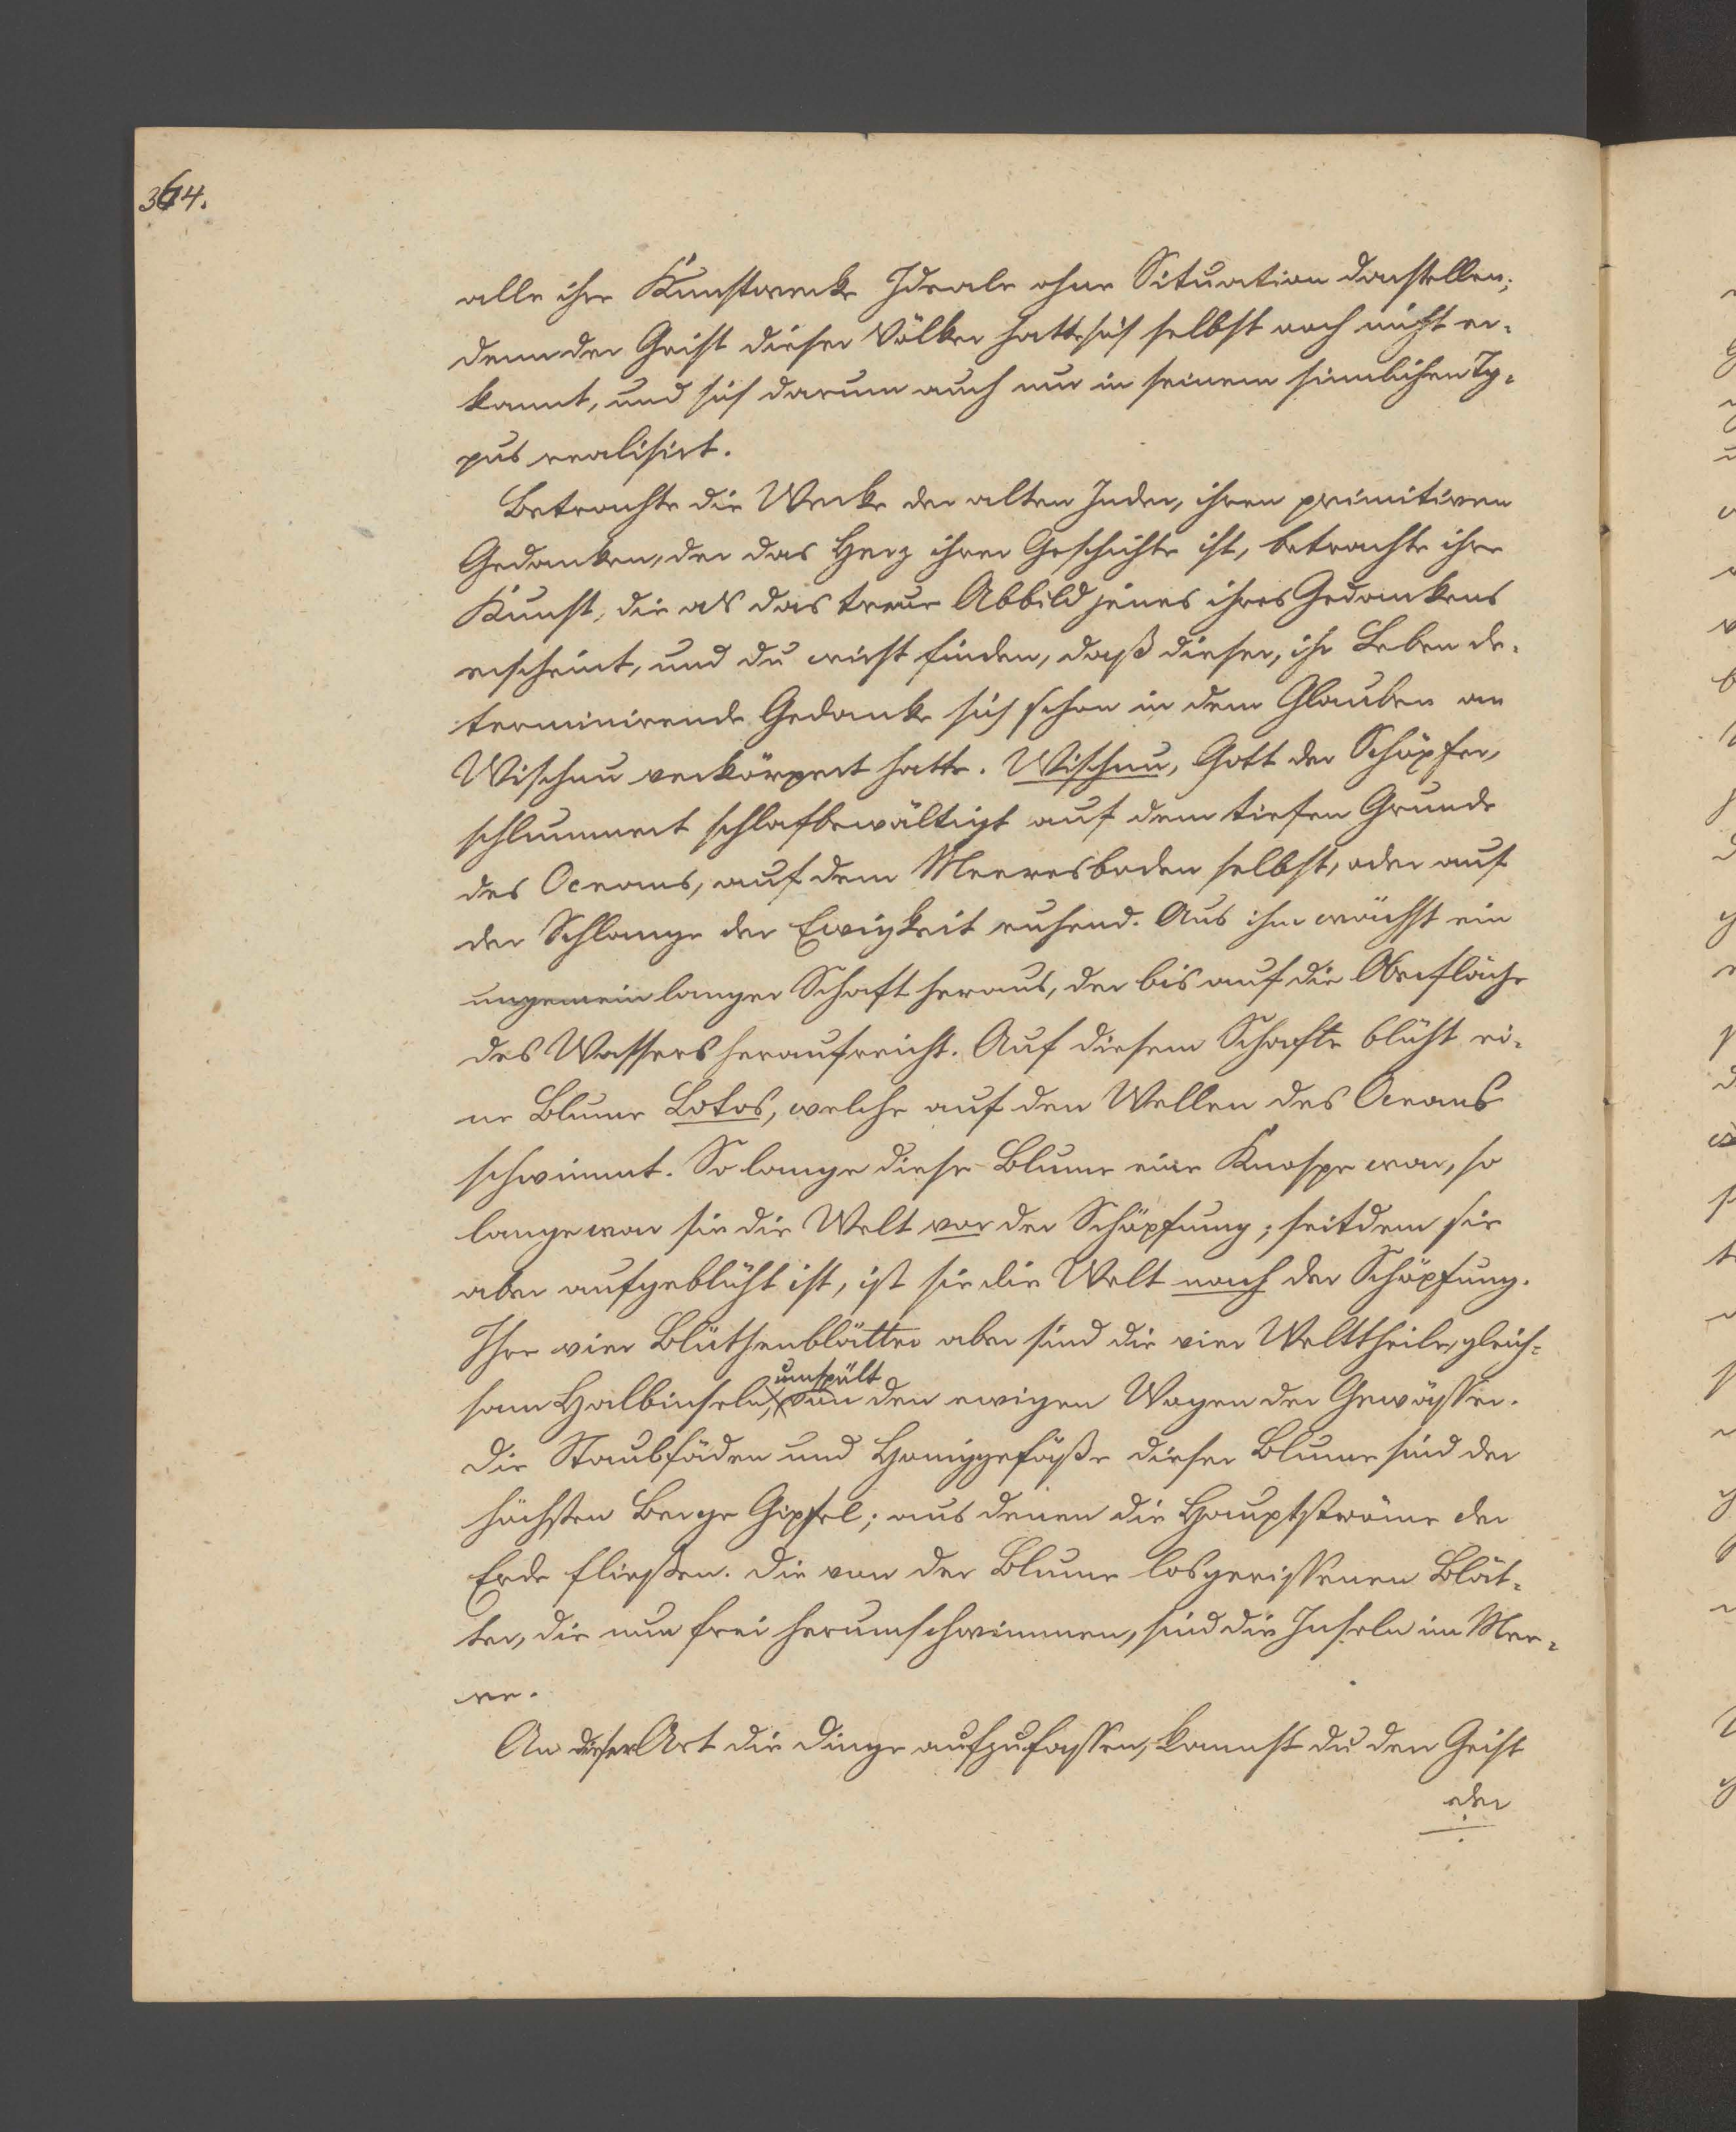 364.
alle ihre Kunstwerke Ideale ohne Situation darstellen;
denn der Geist dieser Völker hatte sich selbst noch nicht er-
kannt, und sich darum auch nur in seinem sinnlichen Ty-
pus realisirt.
Betrachte die Werke der alten Inder, ihren primitiven
Gedanken, der das Herz ihrer Geschichte ist, betrachte ihre
Kunst, die als das treue Abbild jenes ihres Gedankens
erscheint, und du wirst finden, daß dieser, ihr Leben de-
terminirende Gedanke sich schon in dem Glauben an
Wischnu verkörpert hatte. Wischnu, Gott der Schöpfer,
schlummert schlafbewältigt auf dem tiefen Grunde
des Oceans, auf dem Meeresboden selbst, oder auf
der Schlange der Ewigkeit ruhend. Aus ihm wächst ein
ungemein langer Schaft heraus, der bis auf die Oberfläche
des Wassers heraufreicht. Auf diesem Schafte blüht ei-
ne Blume Lotos, welche auf den Wellen des Oceans
schwimmt. So lange diese Blume eine Knospe war, so
lange war sie die Welt vor der Schöpfung; seitdem sie
aber aufgeblüht ist, ist sie die Welt nach der Schöpfung.
Ihre vier Blüthenblätter aber sind die vier Welttheile, gleich-
sam Halbinseln, umspült von den ewigen Wogen der Gewässer.
Die Staubfäden und Honiggefäße dieser Blume sind der
höchsten Berge Gipfel; aus denen die Hauptströme der
Erde fließen. Die von der Blume losgerissenen Blät-
ter, die nun frei herumschwimmen, sind die Inseln im Mee-
re.
An dieser Art die Dinge aufzufassen, kannst du den Geist
der